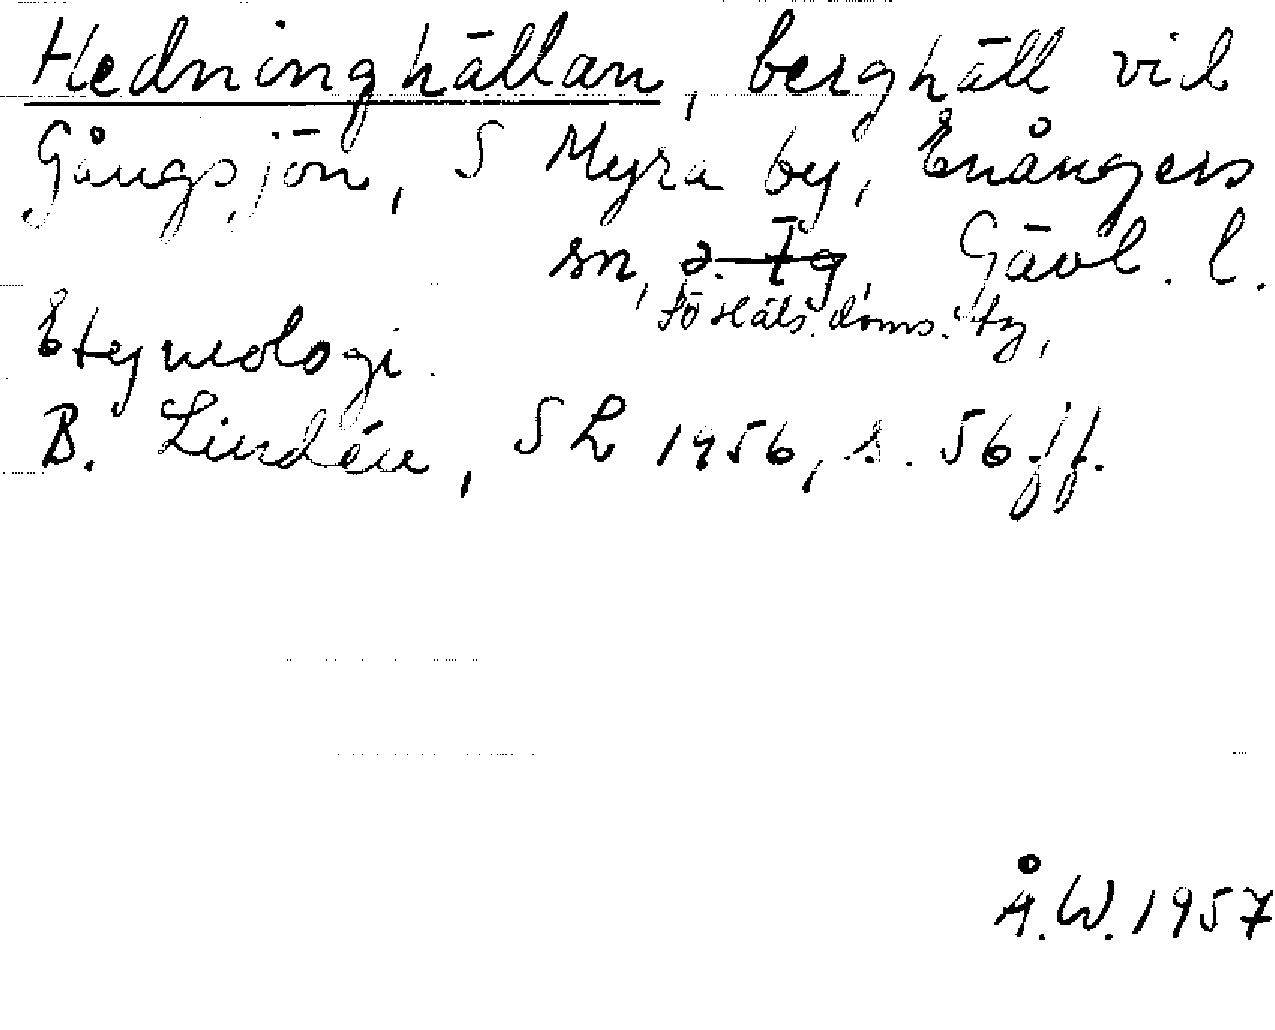 Hedninghällan, berghäll vid
Gångsjön, S Myra by, Enångers
sn, Gävl. l.
Sö Häls. doms. tg,
Etymologi.
B. Lindén, SL 1956, s. 56 ff.
Å.W. 1957